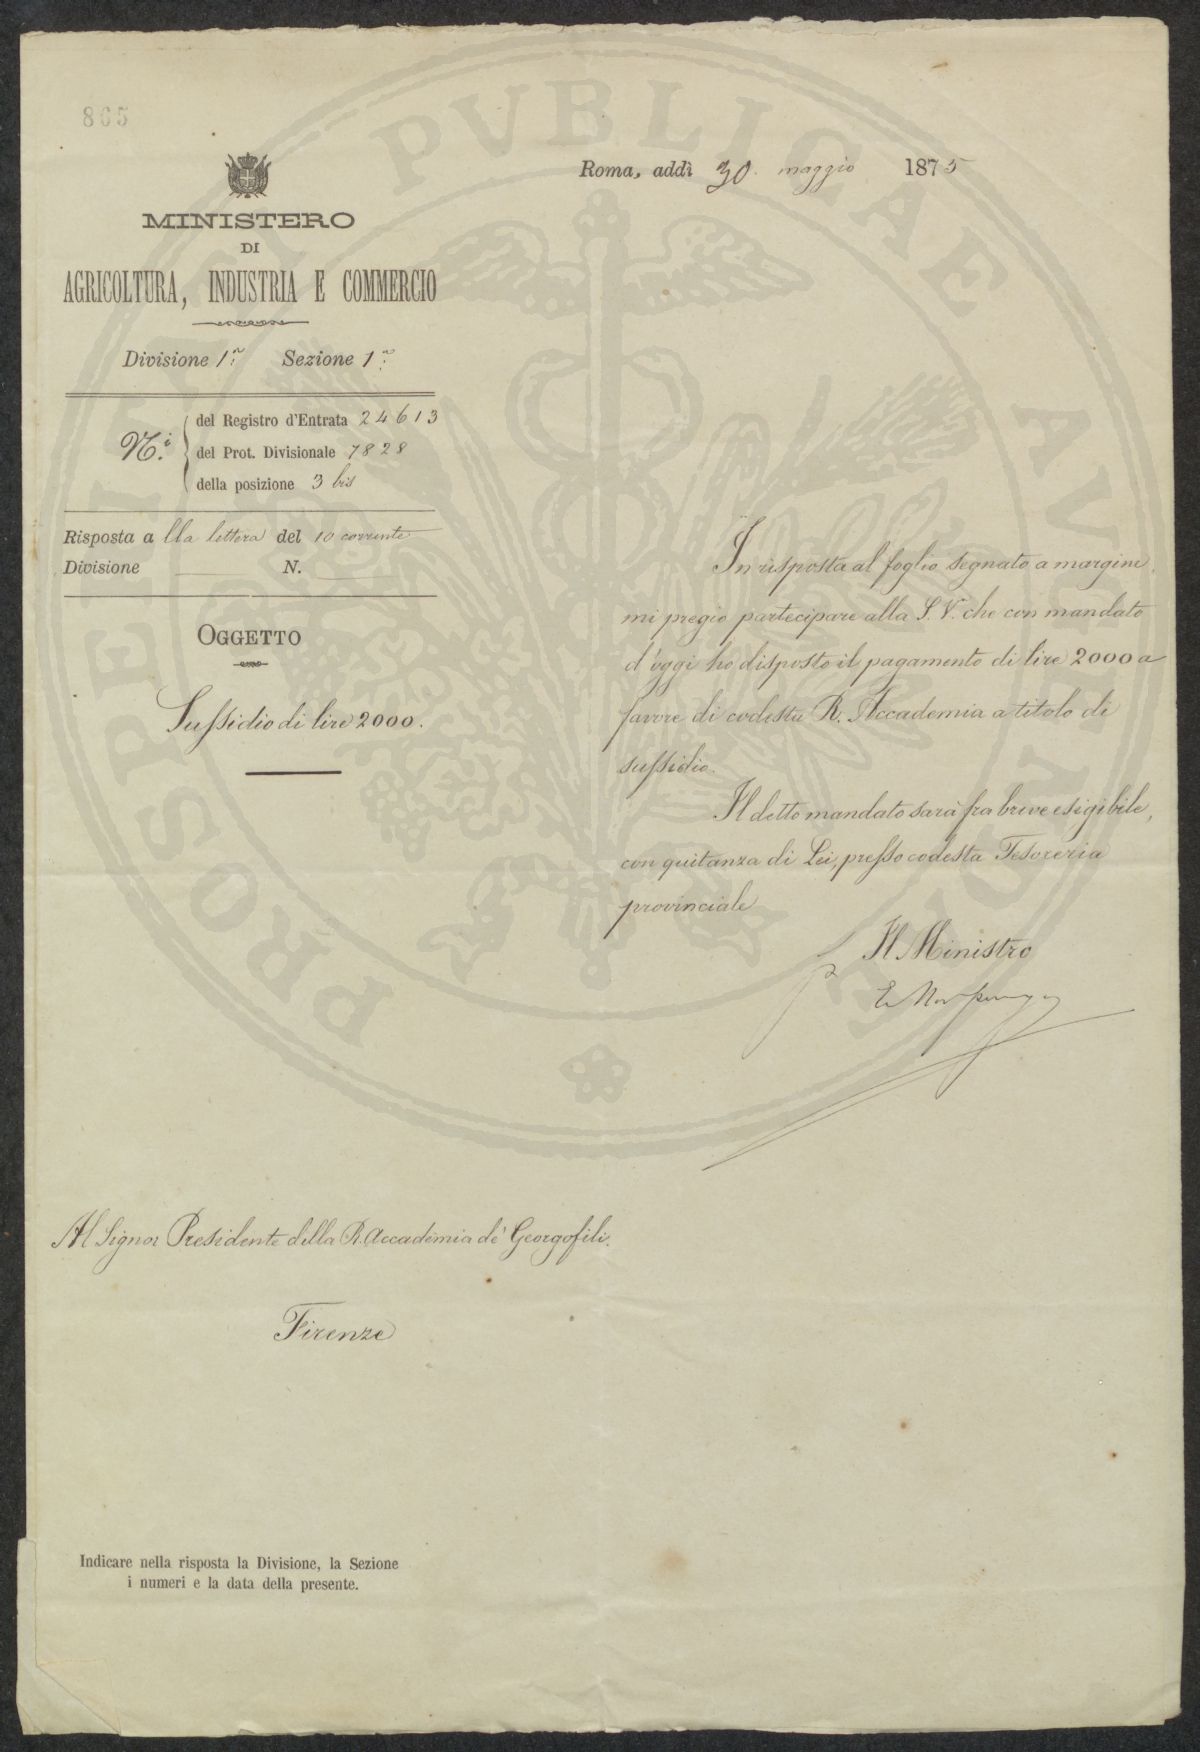 865
Roma, addì 30. maggio 1875
MINISTERO
DI
AGRICOLTURA, INDUSTRIA E COMMERCIO
Divisione 1ª Sezione 1ª
N.i
del Registro d'Entrata 24613
del Prot. Divisionale 7828
della posizione 3 bis
Risposta alla lettera del 10 corrente
Divisione N.
OGGETTO
Sussidio di lire 2000.
In risposta al foglio segnato a margine,
mi pregio partecipare alla S. V. che con mandato
d'oggi ho disposto il pagamento di lire 2000 a
favore di codesta R. Accademia a titolo di
sussidio.
Il detto mandato sarà fra breve esigibile,
con quitanza di Lei, presso codesta Tesoreria
provinciale
Il Ministro
Al Signor Presidente della R. Accademia de' Georgofili.
Firenze
Indicare nella risposta la Divisione, la Sezione
i numeri e la data della presente.
PROSPERITATI PVBLICAE AVGENDAE